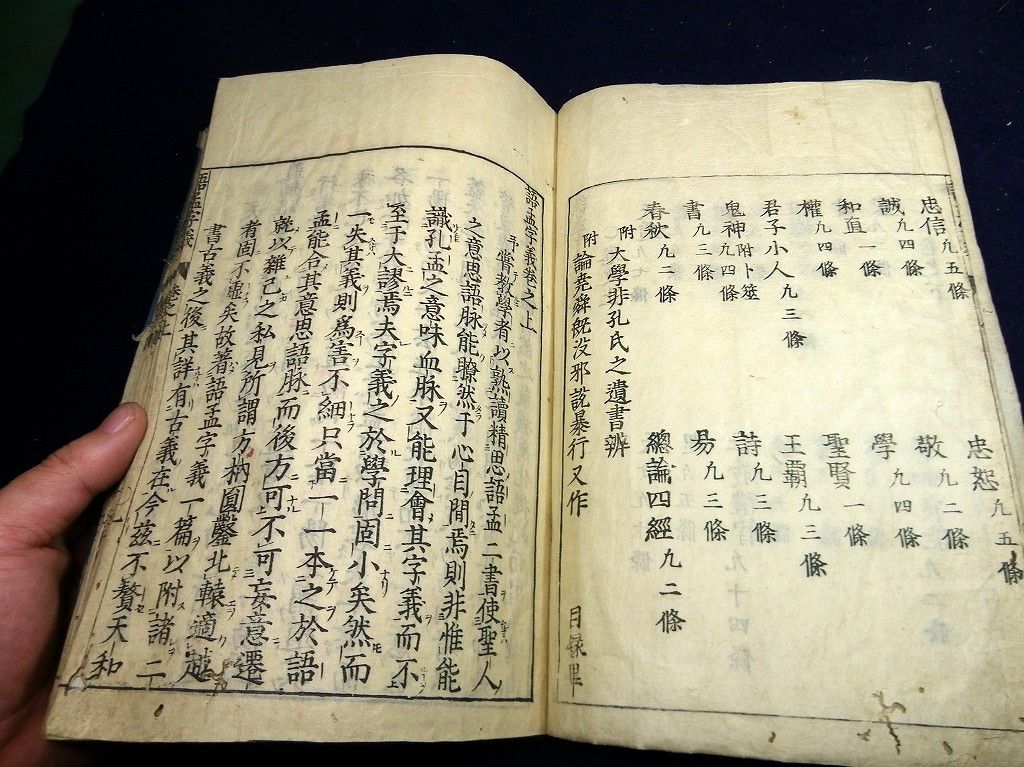 忠信九五條
忠恕九五條
誠九四條
敬九二條
和直一條
學九四條
權九四條
聖賢一條
君子小人九三條
王霸九三條
鬼神附卜筮九四條
詩九三條
書九三條
易九三條
春秋九二條
總論四經九二條
附大學非孔氏之遺書辨
附論堯舜既没邪說暴行又作
目録畢
語孟字義卷之上
予嘗教學者以熟讀精思語孟二書使聖人
之意思語脉能瞭然于心目間焉則非惟能
識孔孟之意味血脉又能理會其字義而不
至于大謬焉夫字義之於學問固小矣然而
一失其義則為害不細只當一一本之於語
孟能合其意思語脉而後方可不可妄意遷
就以雜己之私見所謂方枘圓鑿北轅適越
者固不虛矣故著語孟字義一篇以附諸二
書古義之後其詳有古義在今茲不贅天和
語孟字義